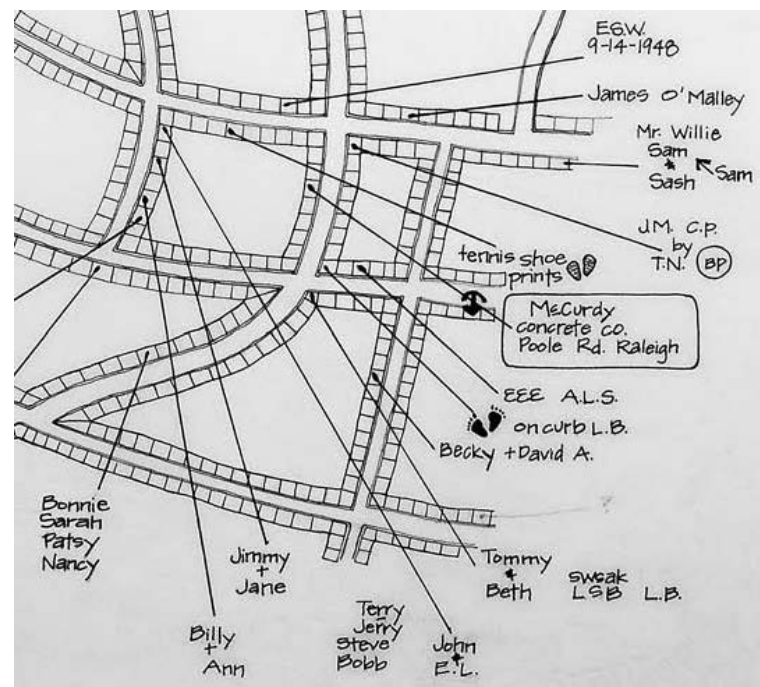 E.S.W.
9-14-1948
James O'Malley
Mr. Willie
Sam
*
Sash
Sam
J.M. C.P.
by
T.N. BP
tennis shoe
prints
McCurdy
concrete co.
Poole Rd. Raleigh
EEE A.L.S.
on curb L.B.
Becky + David A.
Bonnie
Sarah
Patsy
Nancy
Jimmy
+
Jane
Tommy
+
Beth
swsak
LSB L.B.
Billy
+
Ann
Terry
Jerry
Steve
Bobb
John
+
E.L.